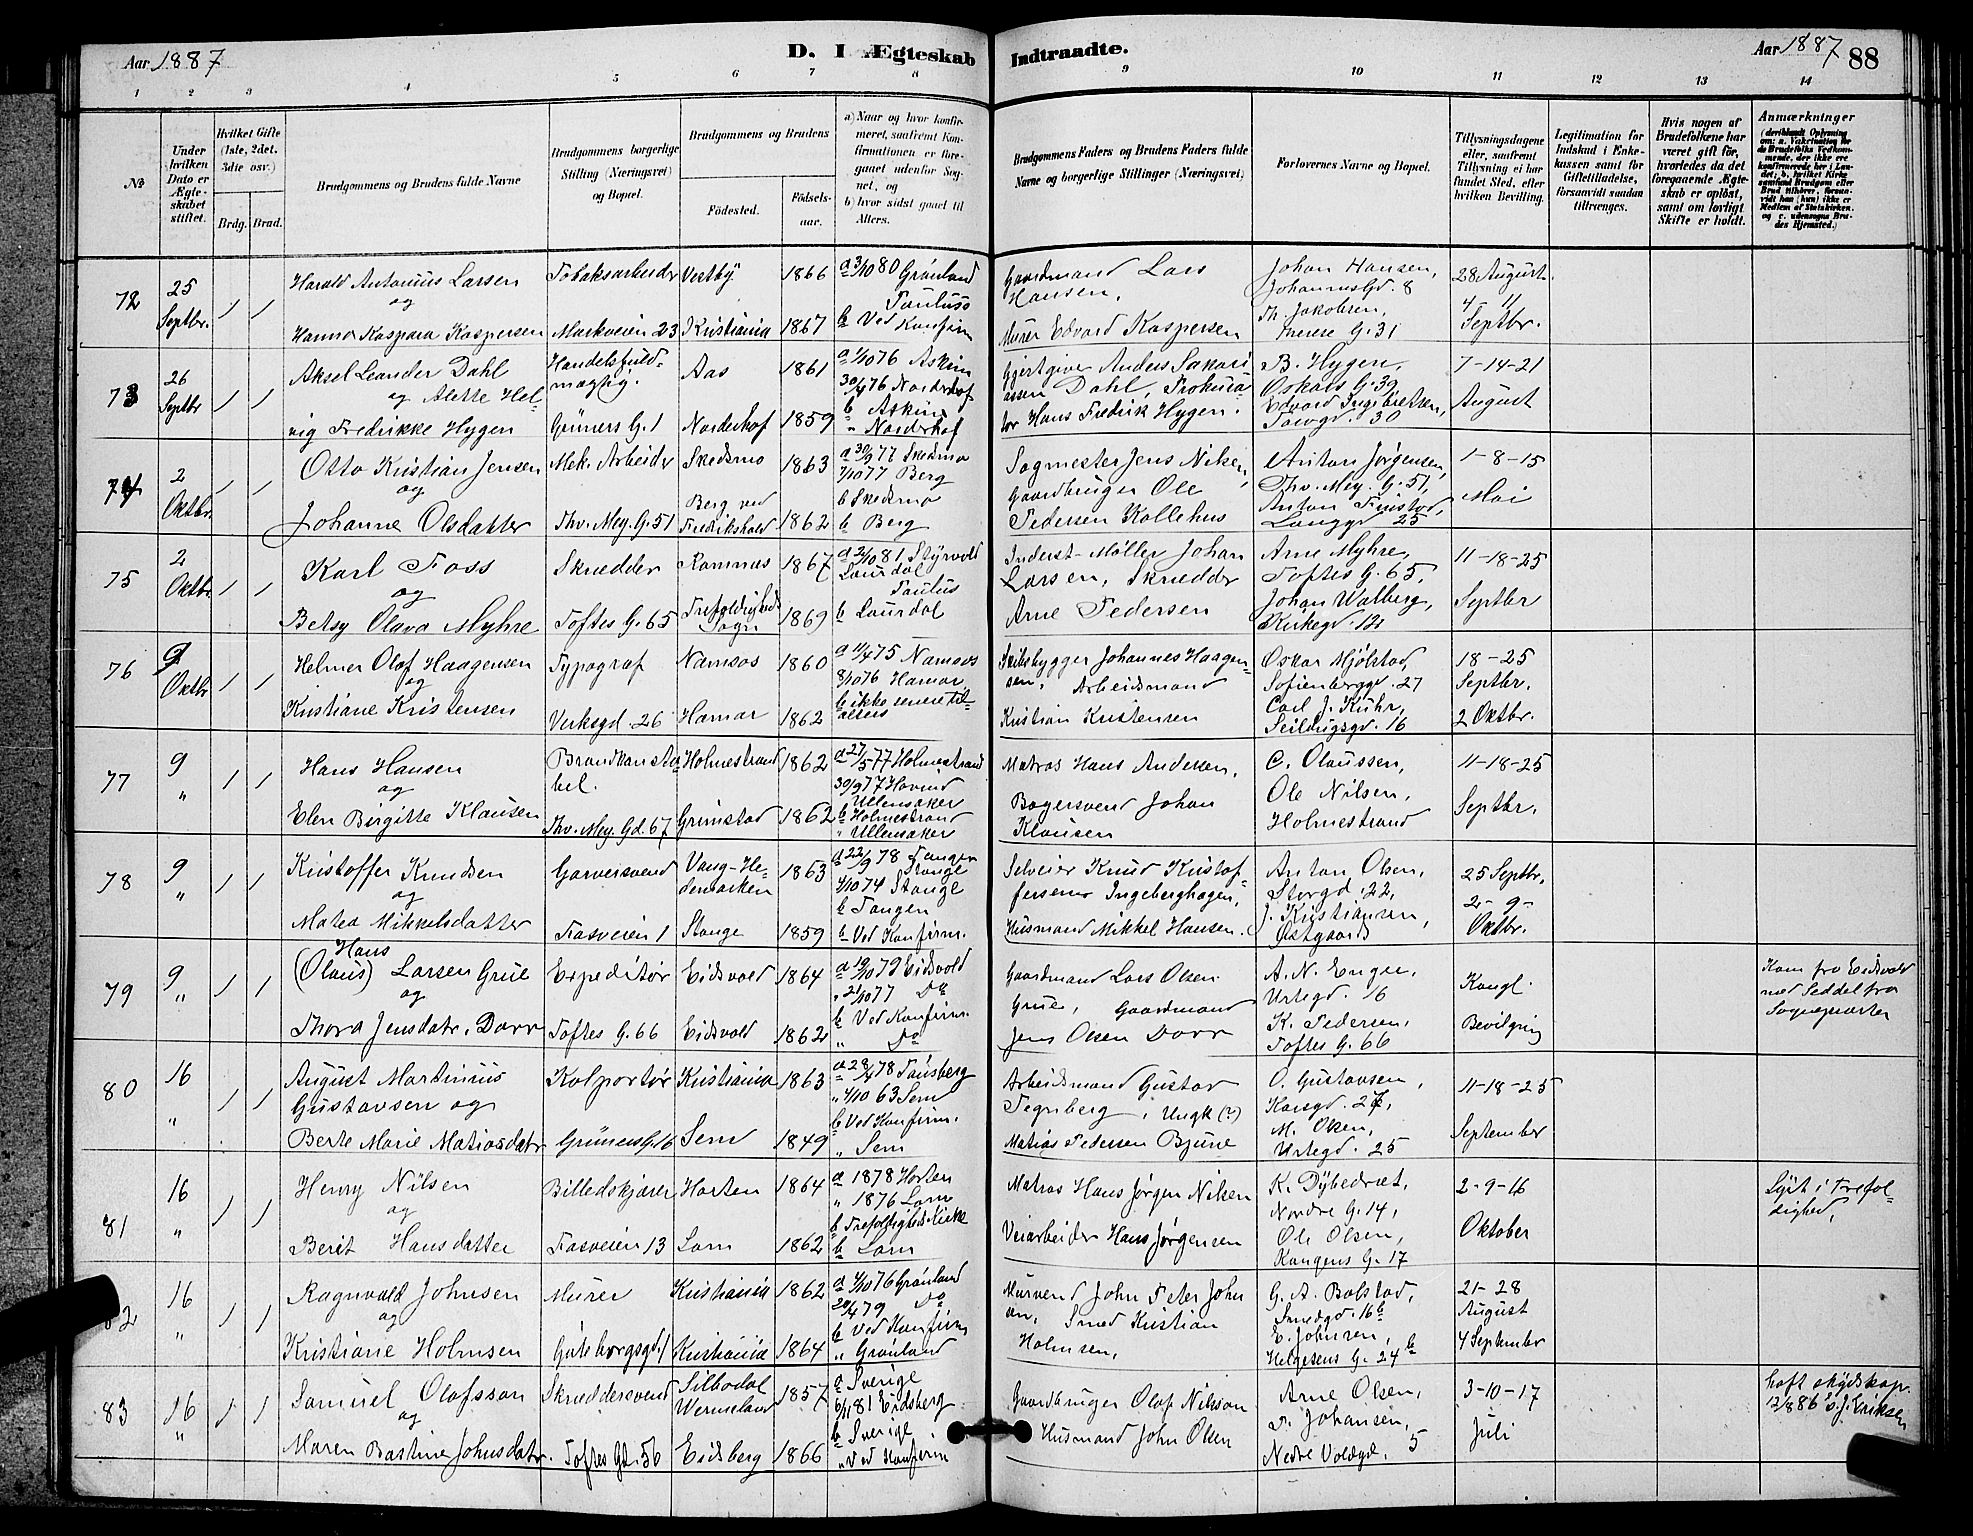 Aar 1887
D. I Ægteskab
Indtraadte.
Aar 1887
88
1 2 3 4 5 6 7 8 9 10 11 12 13 14
№
Under hvilken Dato er Ægteskabet stiftet.
Hvilket Gifte (1ste, 2det. 3die osv.)
Brdg. Brud.
Brudgommens og Brudens fulde Navne
Brudgommens borgerlige Stilling (Næringsvei) og Bopæl.
Brudgommens og Brudens
Fødested.
Fødselsaar.
a) Naar og hvor konfirmeret, saafremt Konfirmationen er foregaaet udenfor Sognet, og
b) hvor sidst gaaet til Alters.
Brudgommens Faders og Brudens Faders fulde Navne og borgerlige Stillinger (Næringsvei)
Forlovernes Navne og Bopæl.
Tillysningsdagene eller, saafremt Tillysning ei har fundet Sted, efter hvilken Bevilling.
Legitimation for Indskud i Enkekassen samt for Giftetilladelse, forsaavidt saadan tiltrænges.
Hvis nogen af Brudefolkene har været gift før, hvorledes da det foregaaende Ægteskab er opløst, samt om lovligt Skifte er holdt.
Anmærkninger
72
25 Septbr.
1 1
Harald Antonius Larsen
og
Hanna Kaspara Kaspersen
Tobaksarbeider
Markveien 23
Vestby 1866
Kristiania 1867
a 3/10 80 Grønland
Paulus
b Ved Konfirm
Gaardmand Lars
Hansen,
Murer Edvard Kaspersen
Johan Hansen,
Johannesgd. 8
Th. Jakobsen,
G. 31
28 August
4 - 11
Septbr.
73
26 Septbr
1 1
Aksel Leander Dahl
og Alette Hel-
vig Fredrikke Hygen
Handelsfuld-
mægtig.
Grüners G. 1
Aas 1861
Norderhof 1859
a 1/10 76 Askim
30/4 76 Norderhof
b Askim
" Norderhof
Gjestgiver Anders Sakari
assen Dahl, Prokura-
tor Hans Fredrik Hygen.
B. Hygen,
Oskars G. 39
Edvard Ingebretsen,
30
7-14-21
August
74
2 Oktbr.
1 1
Otto Kristian Jensen
og
Johanne Olsdatter
Mek. Arbeider
Thv. Mey. G. 51
Skedsmo 1863
Berg ved
Fredrikshald 1862
a 30/9 77 Skedsmo
7/10 77 Berg
b Skedsmo
b Berg
Sagmester Jens Nilsen,
Gaardbruger Ole
Pedersen Kollehus
Anton Jørgensen,
Thv. Mey. G. 51,
Anton
Langgd 25
1-8-15
Mai
75
2 Oktbr.
1 1
Karl Foss
og
Betsy Olava Myhre
Skrædder
Toftes G. 65
Ramnæs 1867
Trefoldigheds
Sogn 1869
a 2/10 81 Styrvold
Laurdal
Paulus
b Laurdal
Inderst-Møller Johan
Larsen, Skrædder
Arne Pedersen
Arne Myhre,
Toftes G. 65,
Johan Walberg,
Kirkegd. 12
11-18-25
Septbr
76
9 Oktbr
1 1
Helmer Olaf Haagensen
og
Kristiane Kristensen
Typograf
Verksgd. 26
Namsos 1860
Hamar 1862
a 11/4 75 Namsos
8/10 76 Hamar
b ikke senere til-
alters
Skibsbygger Johannes Haagen-
sen, Arbeidsmand
Kristian Kristensen
Oskar Mjølstad,
Sofienberggd. 27
Carl J. Kühr,
Seildugsgd. 16
18-25
Septbr.
2 Oktbr.
77
9
"
1 1
Hans Hansen
og
Elen Birgitte Klausen
Brandkonsta-
bel.
Thv. Mey. Gd. 67
Holmestrand 1862
Grimstad 1862
a 27/5 77 Holmestrand
30/9 77 Hovind
Ullensaker
b Holmestrand
" Ullensaker
Matros Hans Andersen,
Bagersvend Johan
Klausen
C. Olaussen,
Ole Nilsen,
Holmestrand
11-18-25
Septbr.
78
9
"
1 1
Kristoffer Knudsen
og
Matea Mikkelsdatter
Garversvend
Fasveien 1
Vang-He-
demarken 1863
Stange 1859
a 22/9 78 Tangen
Stange
4/10 74 Stange
b Tangen
b Ved Konfirm.
Selveier Knud Kristof-
fersen Ingeberghagen,
Husmand Mikkel Hansen.
Anton Olsen,
Storgd. 22,
J. Kristiansen,
Østgaard
25 Septbr.
2-9-
Oktbr.
79
9
"
1 1
Hans
(Olaus) Larsen Grue
og
Thora Jensdatr. Dorr
Expeditør
Toftes G. 66
Eidsvold 1864
Eidsvold 1862
a 19/10 79 Eidsvold
" 21/10 77 Do
b Ved Konfirm.
" Do
Gaardmand Lars Olsen
Grue, Gaardmand
Jens Olsen Dorr
A. N. Engæ,
Urtegd. 16
K. Pedersen,
Toftes G. 66
Kongl.
Bevilgning
Kom fra Eidsvold
med Seddel fra
Sognepræsten
80
16
"
1 1
August Martinius
Gustavsen og
Berte Marie Matiasdatr
Kolportør
Grüners G. 16
Kristiania 1863
Sem 1849
a 28/4 78 Tønsberg
" 4/10 63 Sem
b Ved Konfirm.
" Sem
Arbeidsmand Gustav
Tegnberg, Ungk (?)
Matias Pedersen Bjune
O. Gustavsen,
Korsgd. 27,
M. Olsen,
Urtegd. 25
11-18-25
September
81
16
"
1 1
Henry Nilsen
og
Berit Hansdatter
Billedskjærer
Fasveien 13
Horten 1864
Lom 1862
a 1878 Horten
" 1876 Lom
b Trefoldigheds Kirke
b Lom
Matros Hans Jørgen Nilsen
Veiarbeider Hans Jørgensen
K. Dybedræt,
Nordre G. 14,
Ole Olsen,
Kongens G. 17
2-9-16
Oktober
Lyst i Trefol-
dighed,
82
16
"
1 1
Ragnvald Johnsen
og
Kristiane Holmsen
Murer
Gøteborgsgd. 1
Kristiania 1862
Kristiania 1864
a 1/10 76 Grønland
20/4 79 Do
b Ved Konfirm
" Grønland
Mursvend John Peter John
sen, Smed Kristian
Holmsen,
G. A. Bolstad,
Smedgd. 16b
E. Johnsen,
Helgesens G. 24b
21-28
August
4 September
83
16
"
1 1
Samuel Olafsson
og
Maren Bastine Johnsdatr.
Skræddersvend
Toftes Gd. 56
Silbodal
Wermeland 1857
Eidsberg 1866
a Sverige
6/11 81 Eidsberg
b Sverige
" Ved Konfirm
Gaardbruger Olof Nilsson
Husmand John Olsen
Arne Olsen,
P. Johansen,
Nedre Voldgd. 5
3-10-17
Juli